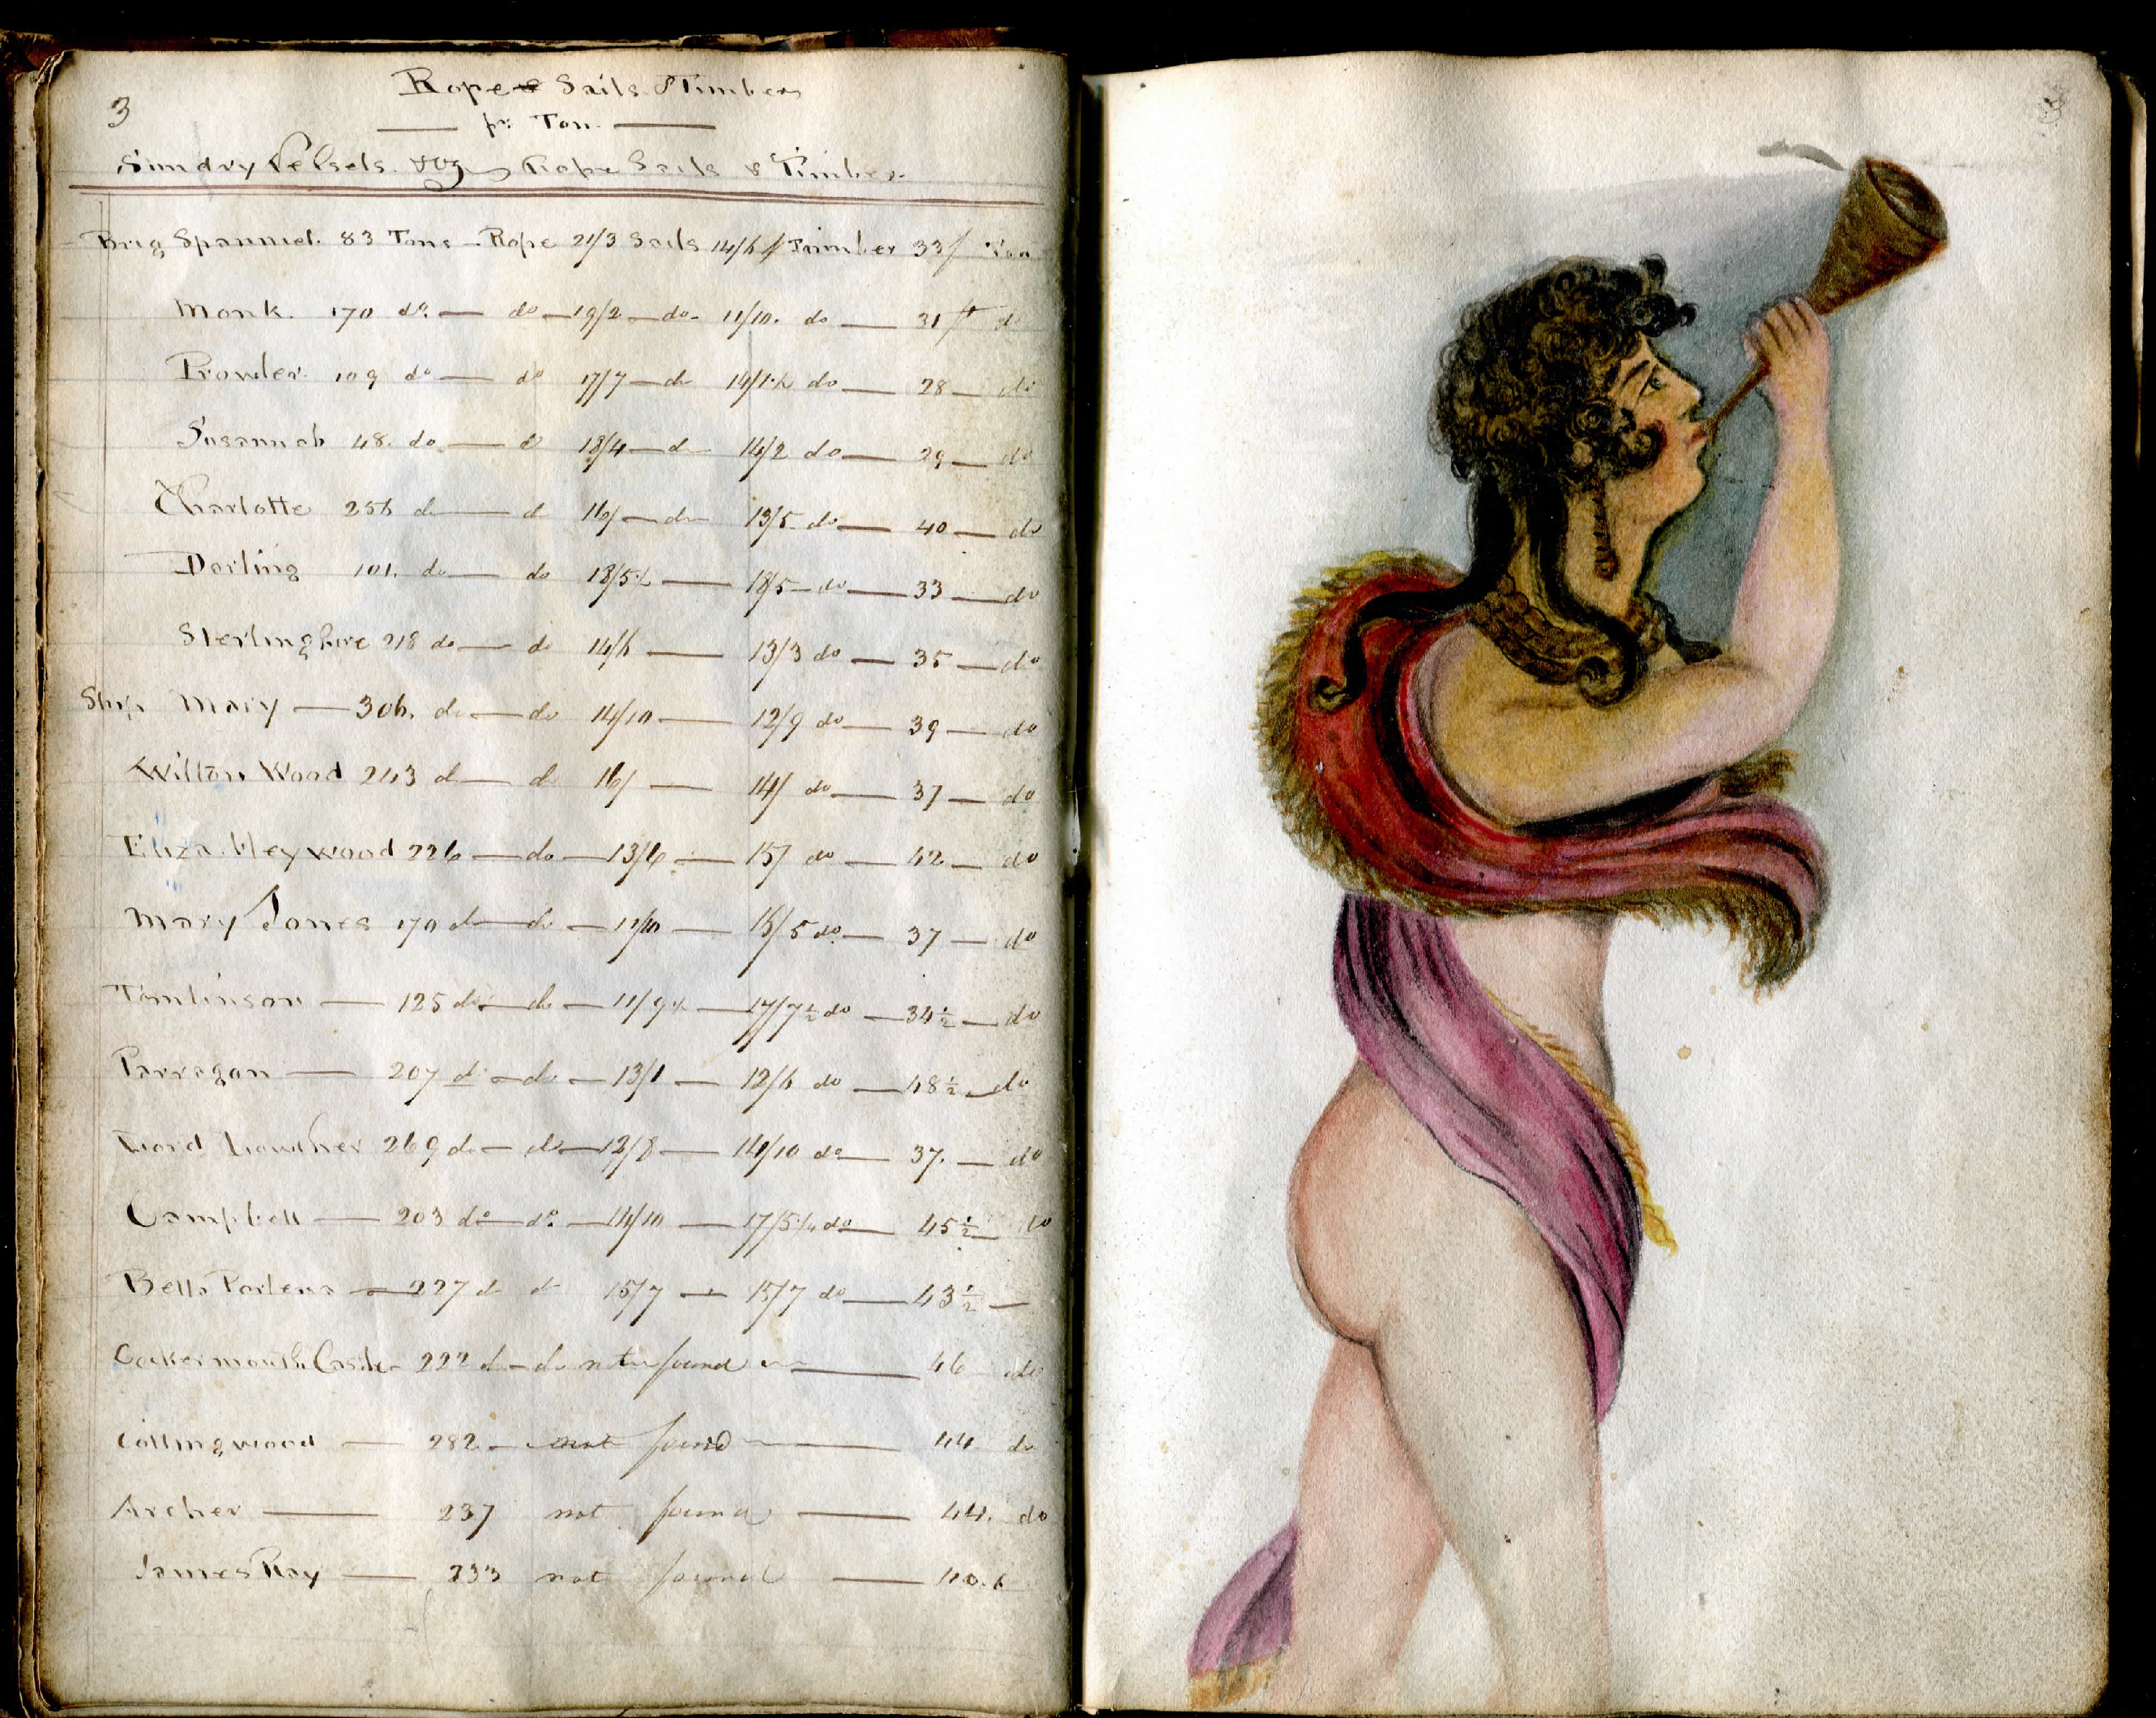 3
Rope Sails & Timbers
pr. Ton.
Sundry Vessels. Viz Rope Sails & Timber.
Brig Spanniel. 83 Tons - Rope 21/3 Sails 14/6 Timber 33/ Ton
Monk. 170 do. — do — 19/2 — do - 11/10. do — 31 do
Prowler. 109 do — do 17/7 — do 14/1½ do — 28 — do
Susannah 48. do. — do 18/4 — do 14/2 do — 29 — do
Charlotte 256 do — do 16/ — do 13/5 do — 40 — do
Dorling 101. do — do 18/5½ — 18/5 — do — 33 — do
Sterlingshire 218 do — do 14/6 — 13/3 do — 35 — do
Ship Mary — 306. do — do 14/10 — 12/9 do — 39 — do
Wilton Wood 243 do — do 16/ — 14/ do — 37 — do
Eliza Heywood 226 — do — 13/6 — 15/ do — 42 — do
Mary Jones 170 do — do — 11/10 — 16/5 do — 37 — do
Tomlinson — 125 do — do — 11/9½ — 17/7½ do — 34½ — do
Parragon — 207 do — do — 13/1 — 12/6 do — 48½ — do
Lord Lowther 269 do — do — 12/8 — 14/10 do — 37. — do
Campbell — 203 do — do. — 14/10 — 17/5½ do — 45½ do
Bella Portena — 227 do do 15/7 — 15/7 do — 43½ —
Cockermouth Castle - 222 do - do not found — 46 do
Collingwood — 282 - not found — 44 do
Archer — 237 not found — 44. do
James Ray — 233 not found — 40.6